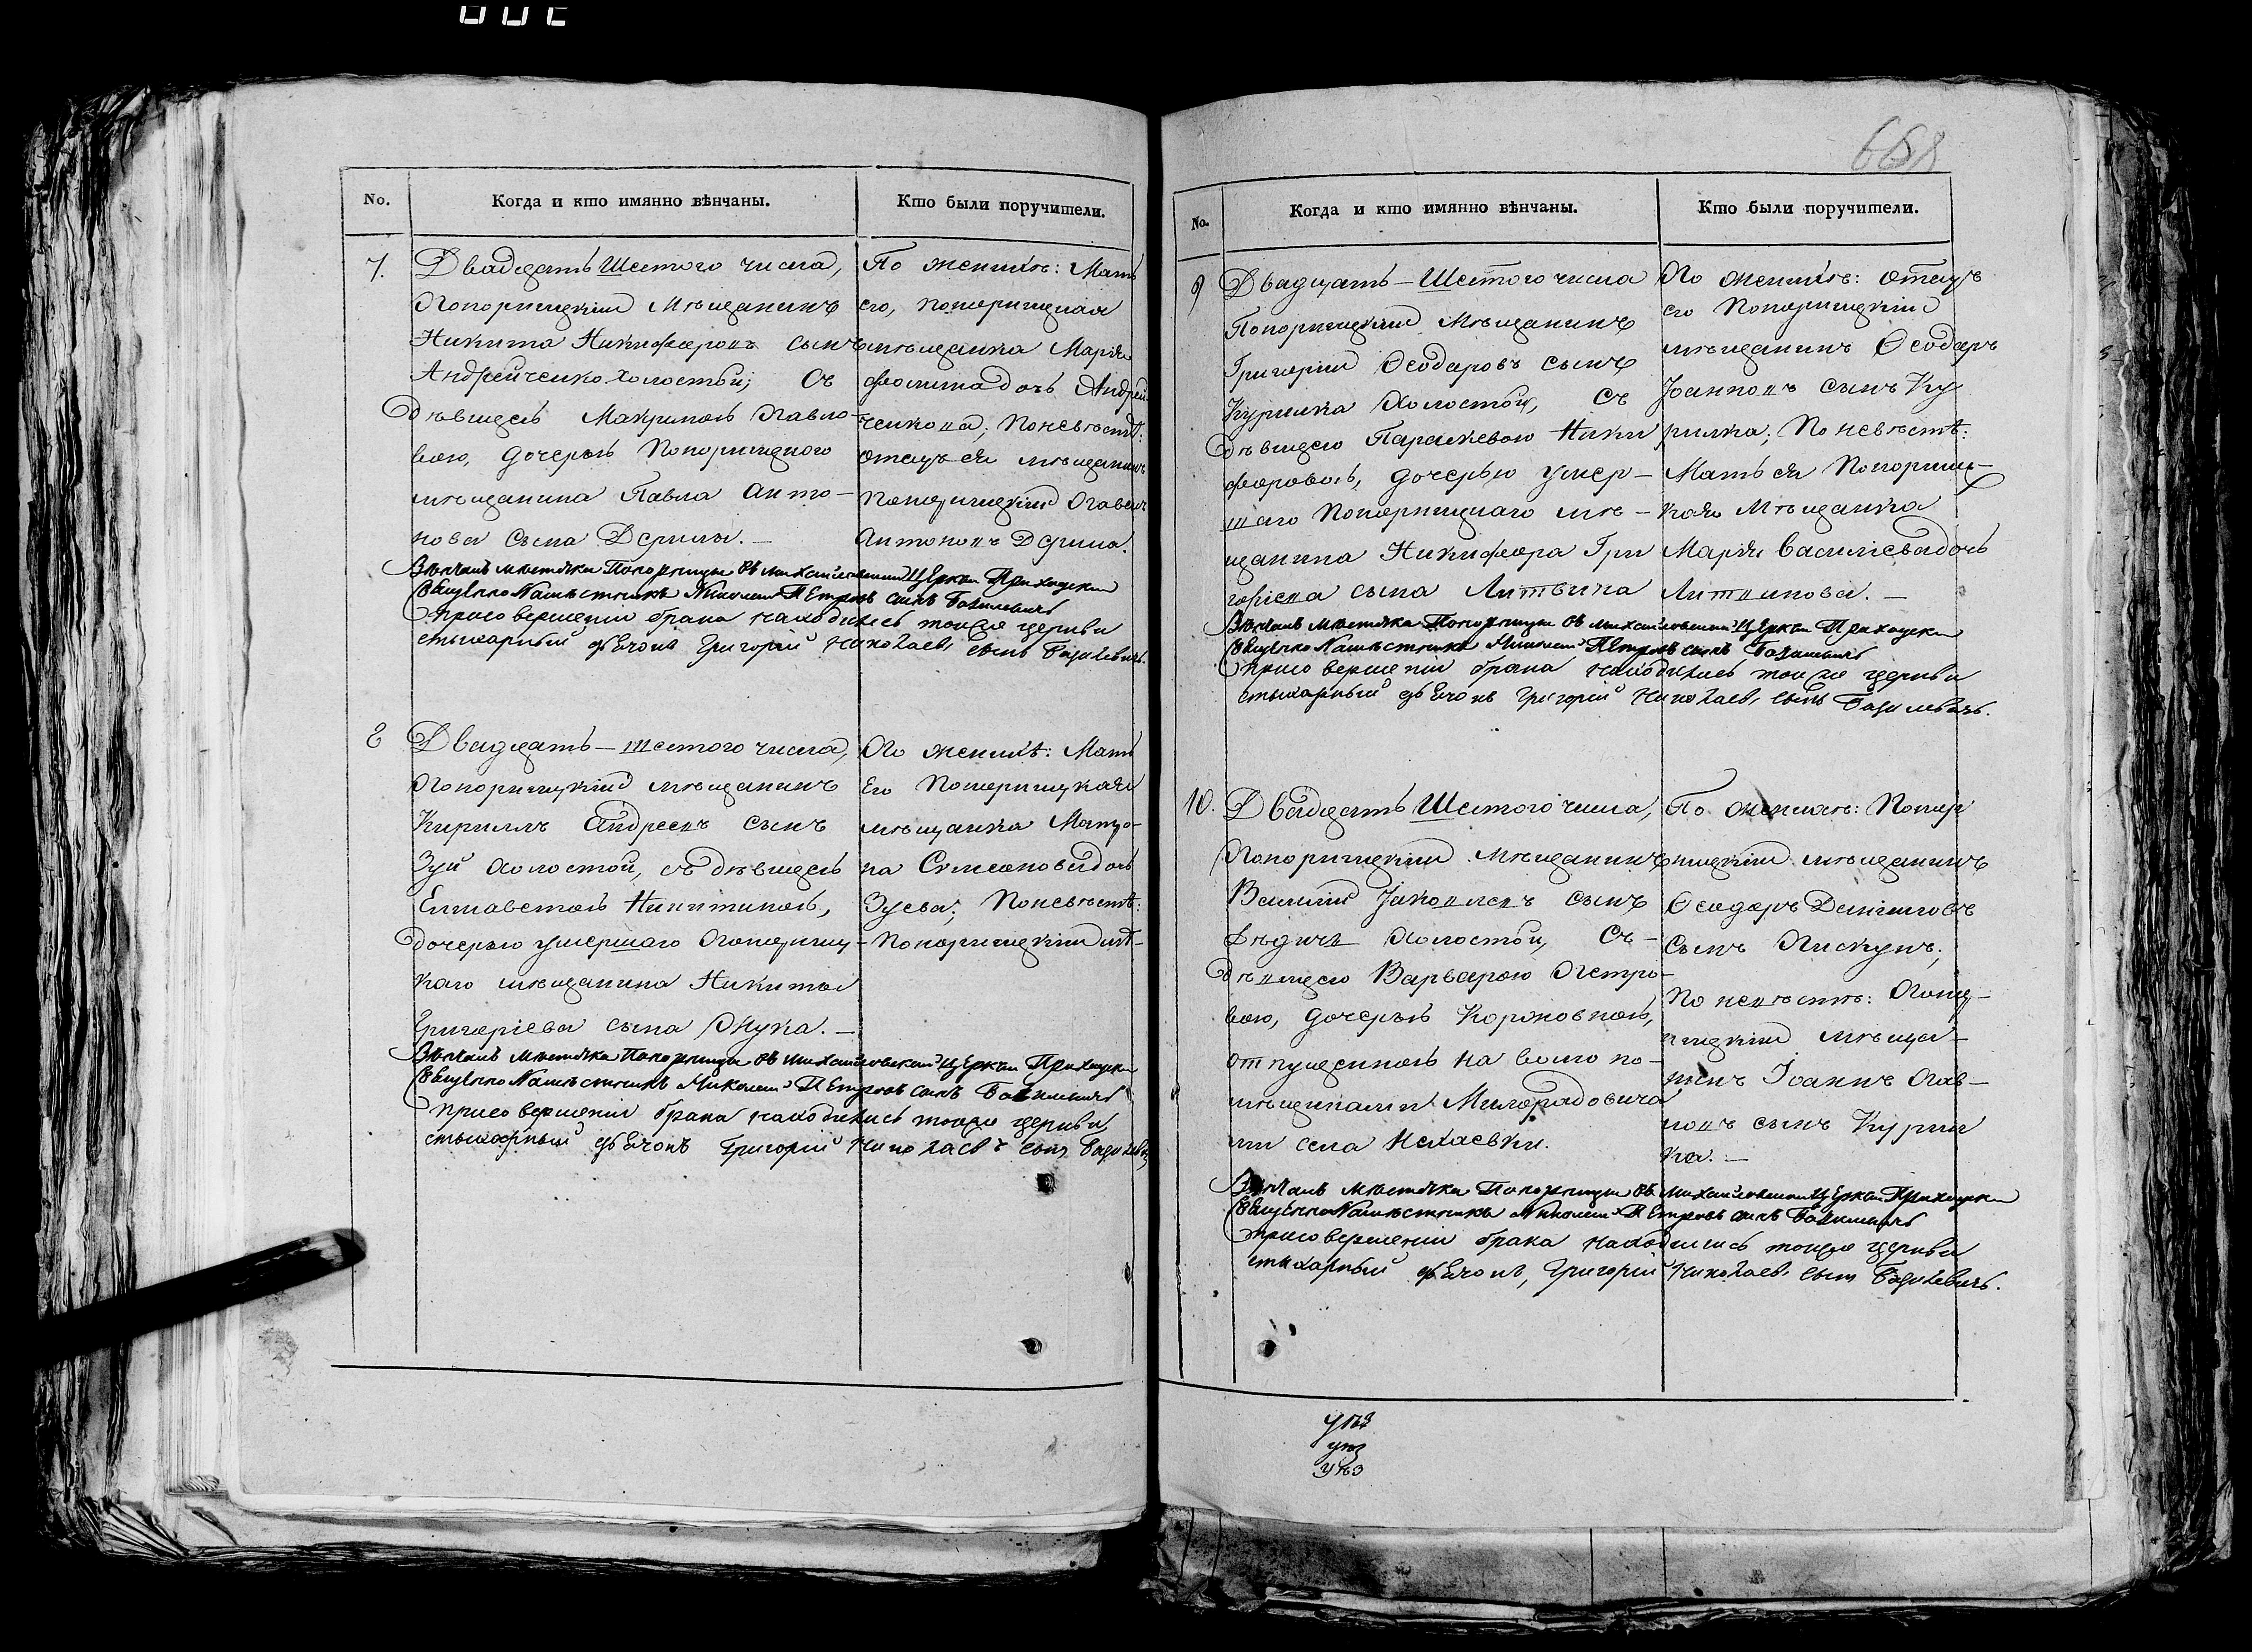 No.
Когда и кто имянно вѣнчаны.
Кто были поручители.
7.
Двадцать Шестого числа,
Попорницкій Мѣщанинъ
Никита Никифоровъ сынъ
Андрейченко холостой; Съ
дѣвицею Макриною Павло-
вою, дочерью Попорницкого
мѣщанина Павла Анто-
нова сына Дериги.—
По женихѣ: Мать
его, попорницкая
мѣщанка Марія
дочь Андрей
ченкова; По невѣстѣ:
отецъ ея мѣщанинъ
Попорницкій Павелъ
Антоновъ
Вѣнчалъ мѣстечка Попорницы въ михайловской Церкви Приходскій
Николай Петровъ сынъ Базилевичъ
присовершеніи брака находились тоя же церкви
стыхарный дьячокъ Григорій Николаевъ сынъ Базилевичъ.
8
Двадцать—шестого числа,
Попорницкій мѣщанинъ
Кириллъ Андреевъ сынъ
Зуй холостой, съ дѣвицею
Елисаветою Никитиною,
дочерью умершаго Попорниц-
каго мѣщанина Никиты
Григоріева сына Онука.—
По женихѣ: Мать
Его Попорницкая
мѣщанка Матро-
на Симеоновадочь
Зуева; По невѣстѣ:
Попорницкій мѣ-
Вѣнчалъ мѣстечка Попорницы въ михайловской Церкви Приходскій
Николай Петровъ сынъ Базилевичъ
присовершеніи брака находились тоя же церкви
стыхарный дьячокъ Григорій Николаевъ сынъ Базилевичъ
668
No.
Когда и кто имянно вѣнчаны.
Кто были поручители.
9
Двадцать—Шестого числа
Попорницкій Мѣщанинъ
Григорій Ѳеодоровъ сынъ
Курилка Холостой, Съ
дѣвицею Параскевою Ники
форовою, дочерью умер-
шаго Попорницкаго мѣ-
щанина Никифора Гри
горіева сына Литвина
По женихѣ: отецъ
его Попорницкій
мѣщанинъ Ѳеодоръ
Іоанновъ сынъ Ку
рилка; По невѣстѣ:
Мать ея Попорниц-
кая Мѣщанка
Марія Василіевадочь
Литвинова.—
Вѣнчалъ мѣстечка Попорницы въ михайловской Церкви Приходскій
Николай Петровъ сынъ Базилевичъ
присовершеніи брака находились тоя же церкви
стыхарный дьячокъ Григорій Николаевъ сынъ Базилевичъ.
10.
Двадцать Шестого числа,
Попорницкій Мѣщанинъ
Василій Іаковлевъ сынъ
Холостой, Съ-
дѣвицею Варварою Петро-
вою, дочерью
отпущенною на волю по-
мѣщиками Милорадовича
ми села Нехаевки.
По женихѣ: Попор
ницкій мѣщанинъ
Ѳеодоръ
сынъ Пискунъ;
По невѣстѣ: Попор-
ницкій мѣща-
нинъ Іоаннъ Пав-
ловъ сынъ Курил
ка.—
Вѣнчалъ мѣстечка Попорницы въ михайловской Церкви Приходскій
Николай Петровъ сынъ Базилевичъ
присовершеніи брака находились тоя же церкви
стихарный дьячокъ, Григорій Николаевъ сынъ Базилевичъ.